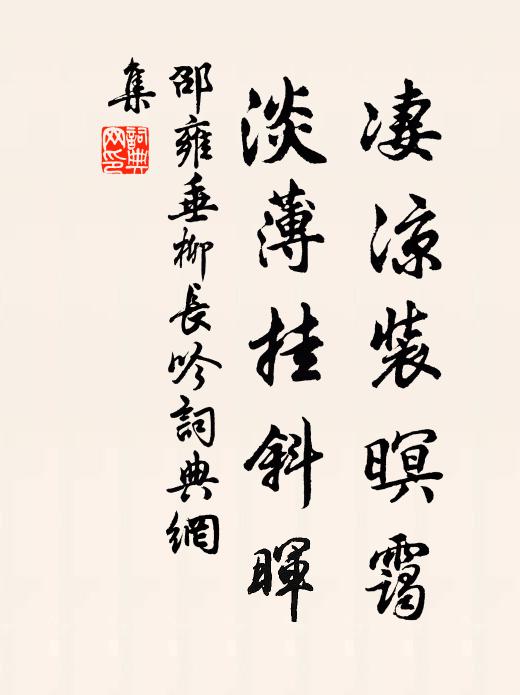 凄涼裝暝靄
淡薄挂斜暉
邵雍垂柳長吟詞典網
集
詞典
网印